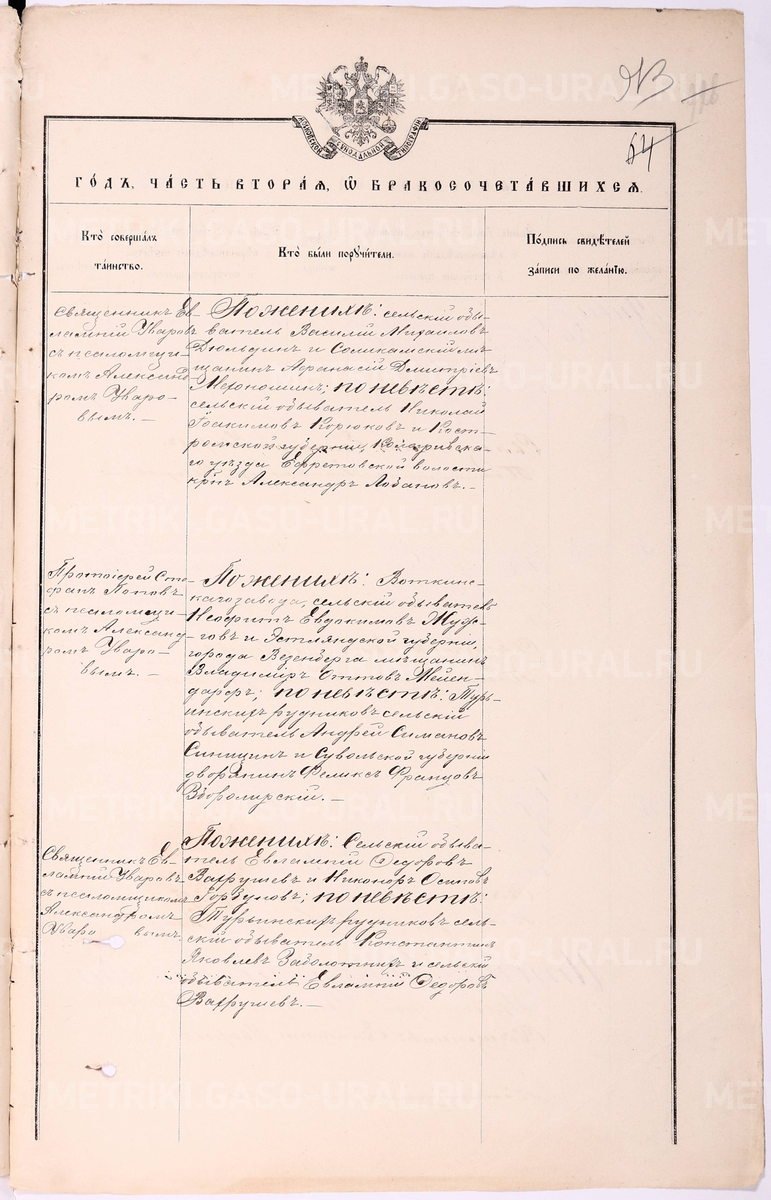 МОСКОВСКОЙ СѴНОДАЛЬНОЙ ТИПОГРАФІИ
64
ГОДЪ, ЧАСТЬ ВТОРАЯ, Ѿ БРАКОСОЧЕТАВШИХСЯ.
Кто совершалъ
таинство.
Кто были поручители.
Подпись свидѣтелей
записи по желанію.
Священникъ Ев-
лампій Уваровъ
съ псаломщи-
комъ Александ
ромъ Уваро-
вымъ. —
По женихѣ: сельскій обы-
ватель Василій Михайловъ
Дюльдинъ и Соликамскій мѣ
щанинъ Афанасій Дмитріевъ
по невѣстѣ:
сельскій обыватель Николай
Іоакимовъ Корюковъ и Кост-
ромской губерніи, Кологривска-
го уѣзда Ефретовской волости
крⷭ҇нъ Александръ Лобановъ. —
Протоіерей Сте-
фанъ Поповъ
съ псаломщи-
комъ Александ-
ромъ Уваро-
вымъ. —
По женихѣ: Воткин-
скаго завода, сельскій обыватель
Неофитъ Евдокимовъ
и Эстляндской губерніи,
города Везенберга мѣщанинъ
Владиміръ Оттовъ Мейен-
дорфъ; по невѣстѣ: Турь-
инскихъ рудниковъ сельскій
обыватель Андрей Симановъ
Синицинъ и Сувалской губерніи
дворянинъ Феликсъ Францовъ
Священникъ Ев-
лампій Уваровъ
съ псаломщикомъ
Александромъ
Уваровымъ
По женихѣ: Сельскій обыва-
тель Евлампій Ѳедоровъ
Вахрушевъ и Никоноръ Осиповъ
Горбуновъ; по невѣстѣ:
Турьинскихъ рудниковъ сель-
скій обыватель Константинъ
Яковлевъ Заболотныхъ и сельскій
обыватель Евлампій Ѳедоровъ
Вахрушевъ. —
METRIKI.GASO-URAL.RU